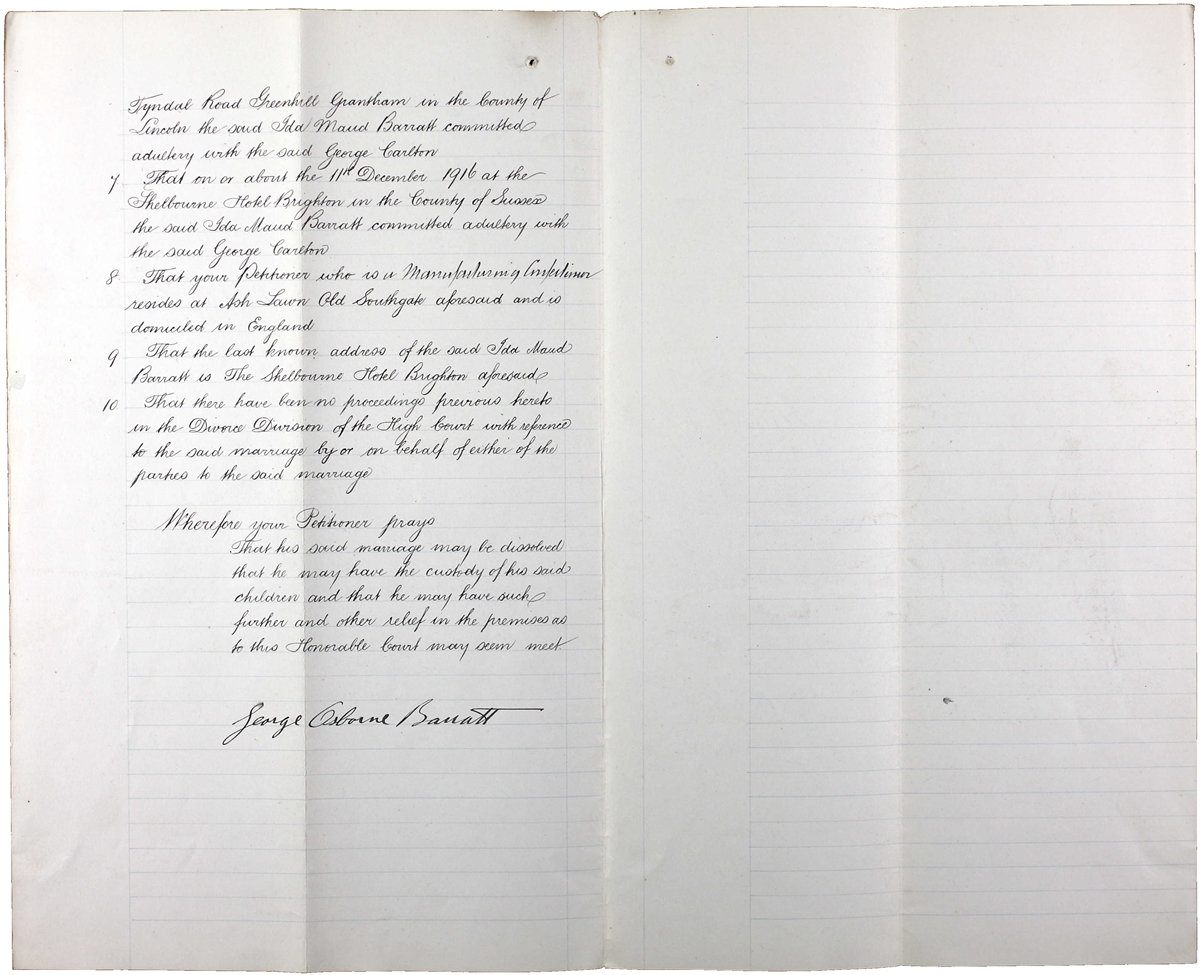 Tyndal Road Greenhill Grantham in the County of
Lincoln the said Ida Maud Barratt committed
adultery with the said George Carlton
7. That on or about the 11th December 1916 at the
Shelbourne Hotel Brighton in the County of Sussex
the said Ida Maud Barratt committed adultery with
the said George Carlton
8. That your Petitioner who is a Manufacturing Confectioner
resides at Ash Lawn Old Southgate aforesaid and is
domiciled in England
9 That the last known address of the said Ida Maud
Barratt is The Shelbourne Hotel Brighton aforesaid
10 That there have been no proceedings previous hereto
in the Divorce Division of the High Court with reference
to the said marriage by or on behalf of either of the
parties to the said marriage
Wherefore your Petitioner prays
That his said marriage may be dissolved
that he may have the custody of his said
children and that he may have such
further and other relief in the premises as
to this Honorable Court may seem meet.
George Osborne Barratt